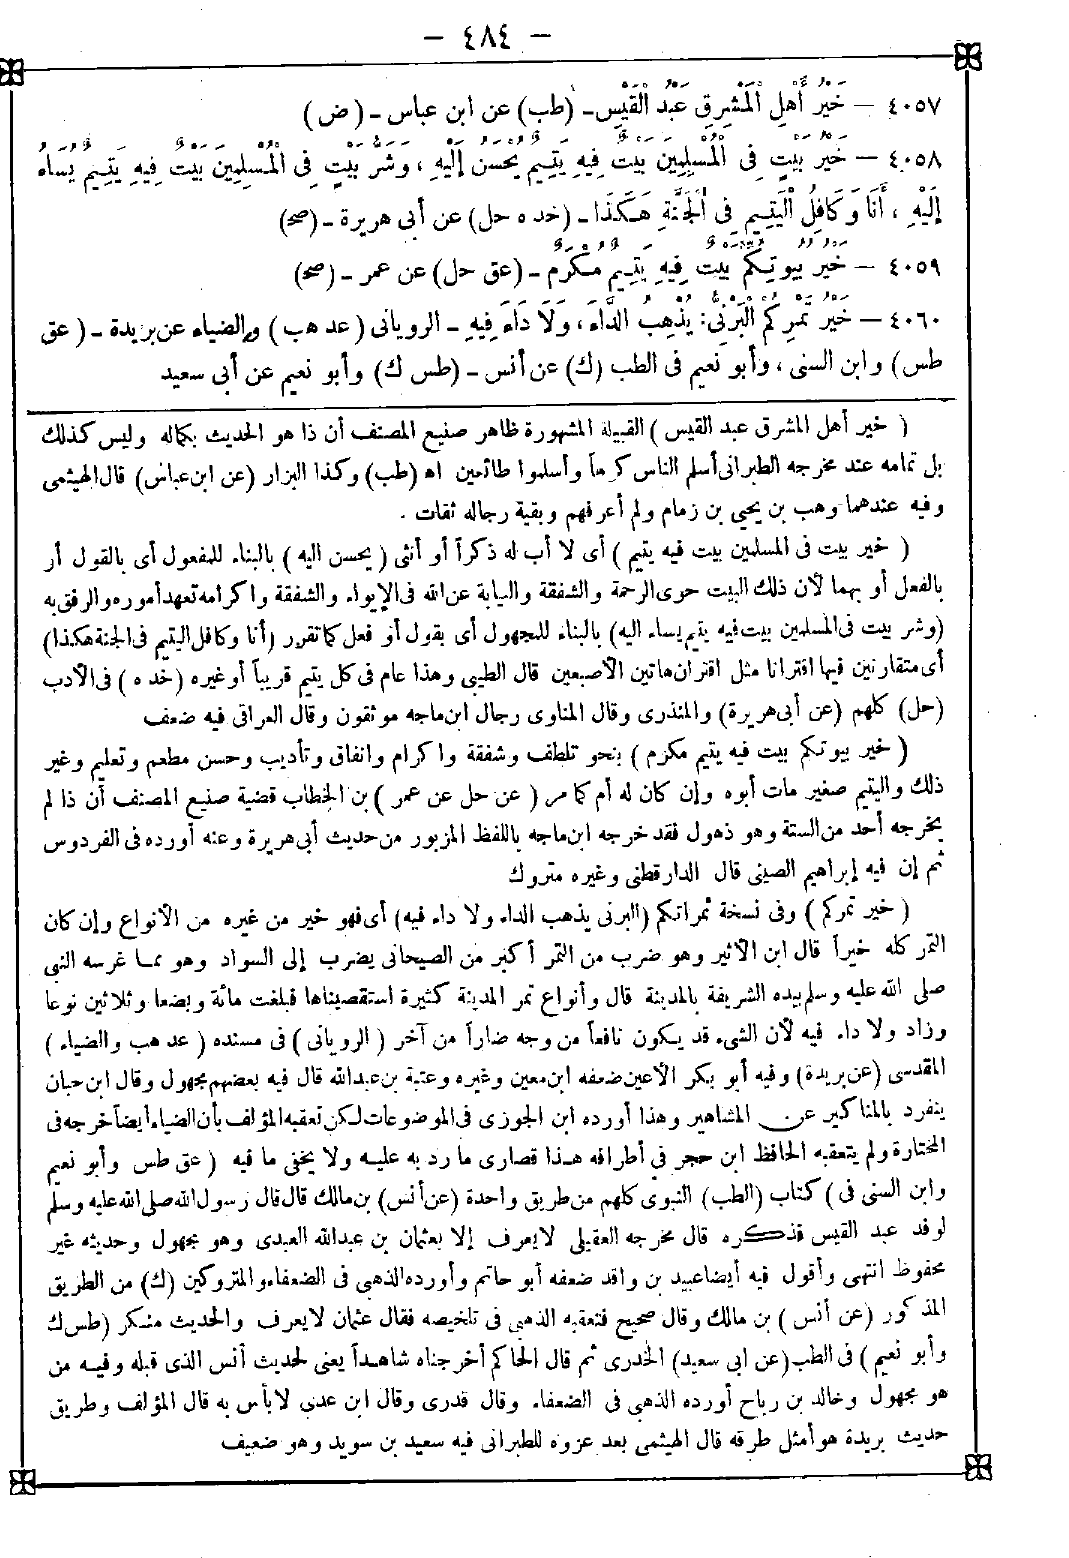 — ٤٨٤ —
٤٠٥٧ — خَيْرُ أَهْلِ الْمَشْرِقِ عَبْدُ الْقَيْسِ ـ (طب) عن ابن عباس ـ (ض)
٤٠٥٨ — خَيْرُ بَيْتٍ فِى الْمُسْلِمِينَ بَيْتٌ فِيهِ يَتِيمٌ يُحْسَنُ إِلَيْهِ ، وَشَرُّ بَيْتٍ فِى الْمُسْلِمِينَ بَيْتٌ فِيهِ يَتِيمٌ يُسَاءُ
إِلَيْهِ ، أَنَا وَكَافِلُ الْيَتِيمِ فِى الْجَنَّةِ هَكَذَا ـ (خد ه حل) عن أبى هريرة ـ (صح)
٤٠٥٩ — خَيْرُ بُيُوتِكُمْ بَيْتٌ فِيهِ يَتِيمٌ مُكْرَمٌ ـ (عق حل) عن عمر ـ (صح)
٤٠٦٠ — خَيْرُ تَمْرِكُمُ الْبَرْنِىُّ: يُذْهِبُ الدَّاءَ ، وَلَا دَاءَ فِيهِ ـ الرويانى (عد هب) والضياء عن بريدة ـ (عق
طس) وابن السنى ، وأبو نعيم فى الطب (ك) عن أنس ـ (طس ك) وأبو نعيم عن أبى سعيد
( خير أهل المشرق عبد القيس ) القبيلة المشهورة ظاهر صنيع المصنف أن ذا هو الحديث بكماله وليس كذلك
بل تمامه عند مخرجه الطبرانى أسلم الناس كرهاً وأسلموا طائعين اه (طب) وكذا البزار (عن ابن عباس) قال الهيثمى
وفيه عندهما وهب بن يحيى بن زمام ولم أعرفهم وبقية رجاله ثقات .
( خير بيت فى المسلمين بيت فيه يتيم ) أى لا أب له ذكراً أو أنثى ( يحسن اليه ) بالبناء للمفعول أى بالقول أر
بالفعل أو بهما لأن ذلك البيت حوى الرحمة والشفقة والنيابة عن الله فى الإيواء والشفقة واكرامه تعهد أموره والرفق به
(وشر بيت فى المسلمين بيت فيه يتيم يساء اليه) بالبناء للمجهول أى بقول أو فعل كما تقرر (أنا وكافل اليتيم فى الجنة هكذا)
أى متقارنين فيها اقترانا مثل اقتران هاتين الأصبعين قال الطيبى وهذا عام فى كل يتيم قريباً أو غيره (خد ه ) فى الأدب
(حل) كلهم (عن أبى هريرة) والمنذرى وقال المناوى رجال ابن ماجه موثقون وقال العراقى فيه ضعف
( خير بيوتكم بيت فيه يتيم مكرم ) بنحو تلطف وشفقة واكرام وانفاق وتأديب وحسن مطعم وتعليم وغير
ذلك واليتيم صغير مات أبوه وإن كان له أم كما مر ( عن حل عن عمر ) بن الخطاب قضية صنيع المصنف أن ذا لم
يخرجه أحد من الستة وهو ذهول فقد خرجه ابن ماجه باللفظ المزبور من حديث أبى هريرة وعنه أورده فى الفردوس
ثم إن فيه إبراهيم الصينى قال الدارقطنى وغيره متروك
( خير تمركم ) وفى نسخة ثمراتكم (البرنى يذهب الداء ولا داء فيه) أى فهو خير من غيره من الأنواع وإن كان
التمر كله خيراً قال ابن الأثير وهو ضرب من التمر أكبر من الصيحانى يضرب إلى السواد وهو مما غرسه النبى
صلى الله عليه وسلم بيده الشريفة بالمدينة قال وأنواع تمر المدينة كثيرة استقصيناها فبلغت مائة وبضعا وثلاثين نوعا
وزاد ولا داء فيه لأن الشىء قد يكون نافعاً من وجه ضاراً من آخر ( الرويانى ) فى مسنده ( عد هب والضياء )
المقدسى (عن بريدة) وفيه أبو بكر الأعين ضعفه ابن معين وغيره وعتبة بن عبدالله قال فيه بعضهم مجهول وقال ابن حبان
ينفرد بالمناكير عن المشاهير وهذا أورده ابن الجوزى فى الموضوعات لكن تعقبه المؤلف بأن الضياء أيضاً خرجه فى
المختارة ولم يتعقبه الحافظ ابن حجر فى أطرافه هذا قصارى ما رد به عليه ولا يخفى ما فيه ( عق طس وأبو نعيم
وابن السنى فى ) كتاب (الطب) النبوى كلهم من طريق واحدة (عن أنس) بن مالك قال قال رسول الله صلى الله عليه وسلم
لوفد عبد القيس فذكره قال مخرجه العقيلى لا يعرف إلا بعثمان بن عبدالله العبدى وهو مجهول وحديثه غير
محفوظ انتهى وأقول فيه أيضا عبيد بن واقد ضعفه أبو حاتم وأورده الذهبى فى الضعفاء والمتروكين (ك) من الطريق
المذكور (عن أنس ) بن مالك وقال صحيح فتعقبه الذهبى فى تلخيصه فقال عثمان لا يعرف والحديث منكر (طس ك
وأبو نعيم ) فى الطب (عن ابى سعيد) الخدرى ثم قال الحاكم أخرجناه شاهداً يعنى لحديث أنس الذى قبله وفيه من
هو مجهول وخالد بن رباح أورده الذهبى فى الضعفاء وقال قدرى وقال ابن عدى لا بأس به قال المؤلف وطريق
حديث بريدة هو أمثل طرقه قال الهيثمى بعد عزوه للطبرانى فيه سعيد بن سويد وهو ضعيف